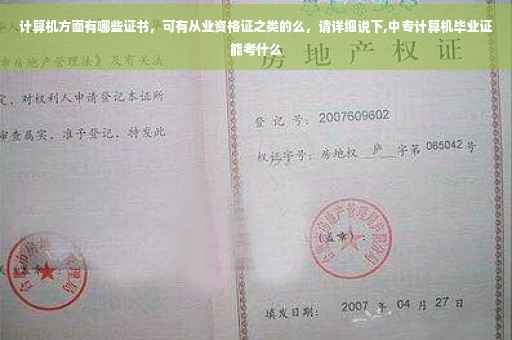 计算机方面有哪些证书，可有从业资格证之类的么，请详细说下,中专计算机毕业证
能考什么
房地产管理法》及有关法
定，对权利人申请登记本证所
审查属实，准予登记，特发此
登 记 号： 2007609602
权证字号：房地权 庐 字第 065042 号
(盖章)：
填发日期： 2007 年 04 月 27 日